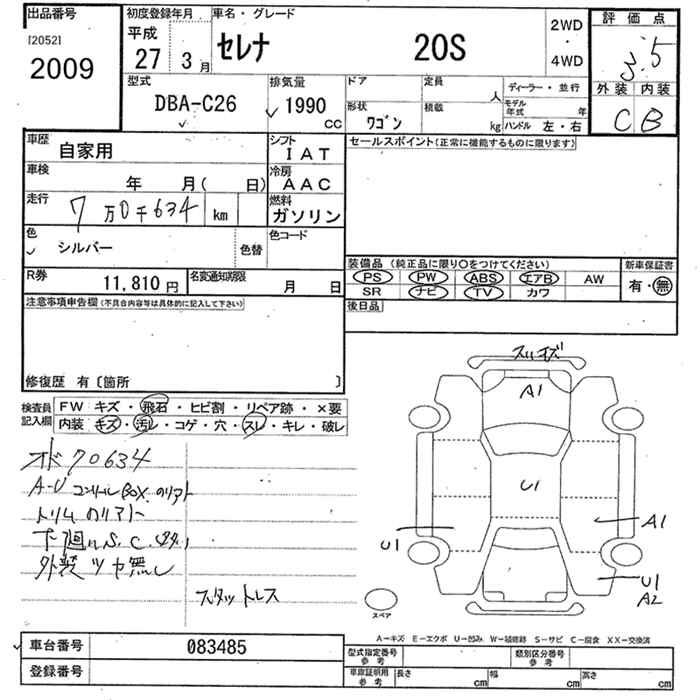 出品番号
[2052]
2009
初度登録年月
平成
27 3月
車名・グレード
セレナ 20S
2WD
・
4WD
評価点
3.5
外装 内装
C B
型式
DBA-C26
排気量
1990
CC
ドア
形状
ワゴン
定員
人
積載
kg
ディーラー・並行
モデル年式 年
ハンドル 左・右
車歴
自家用
シフト
IAT
車検
年 月( 日)
冷房
AAC
走行
7万0千634 km
燃料
ガソリン
色
シルバー
色替
色コード
R券
11,810円
名変通知期限
月 日
セールスポイント(正常に機能するものに限ります)
装備品 (純正品に限り○をつけてください)
PS PW ABS エアB AW
SR ナビ TV カワ
新車保証書
有・無
後日品
注意事項申告欄(不具合内容等は具体的に記入して下さい)
修復歴 有〔箇所 〕
検査員記入欄
FW キズ・飛石・ヒビ割・リペア跡・×要
内装 キズ・汚レ・コゲ・穴・スレ・キレ・破レ
オド70634
A-U コンソールBOX のリアト
トリム のリアト
下廻り S.C.
外装ツヤ無し
スタットレス
スリキズ
A1
U1
A1
U1
U1
A2
スペア
A-キズ E-エクボ U-凹み W-補修跡 S-サビ C-腐食 XX-交換済
車台番号
083485
登録番号
型式指定番号
参考
類別区分番号
参考
車庫証明用
参考
長さ cm
幅 cm
高さ cm